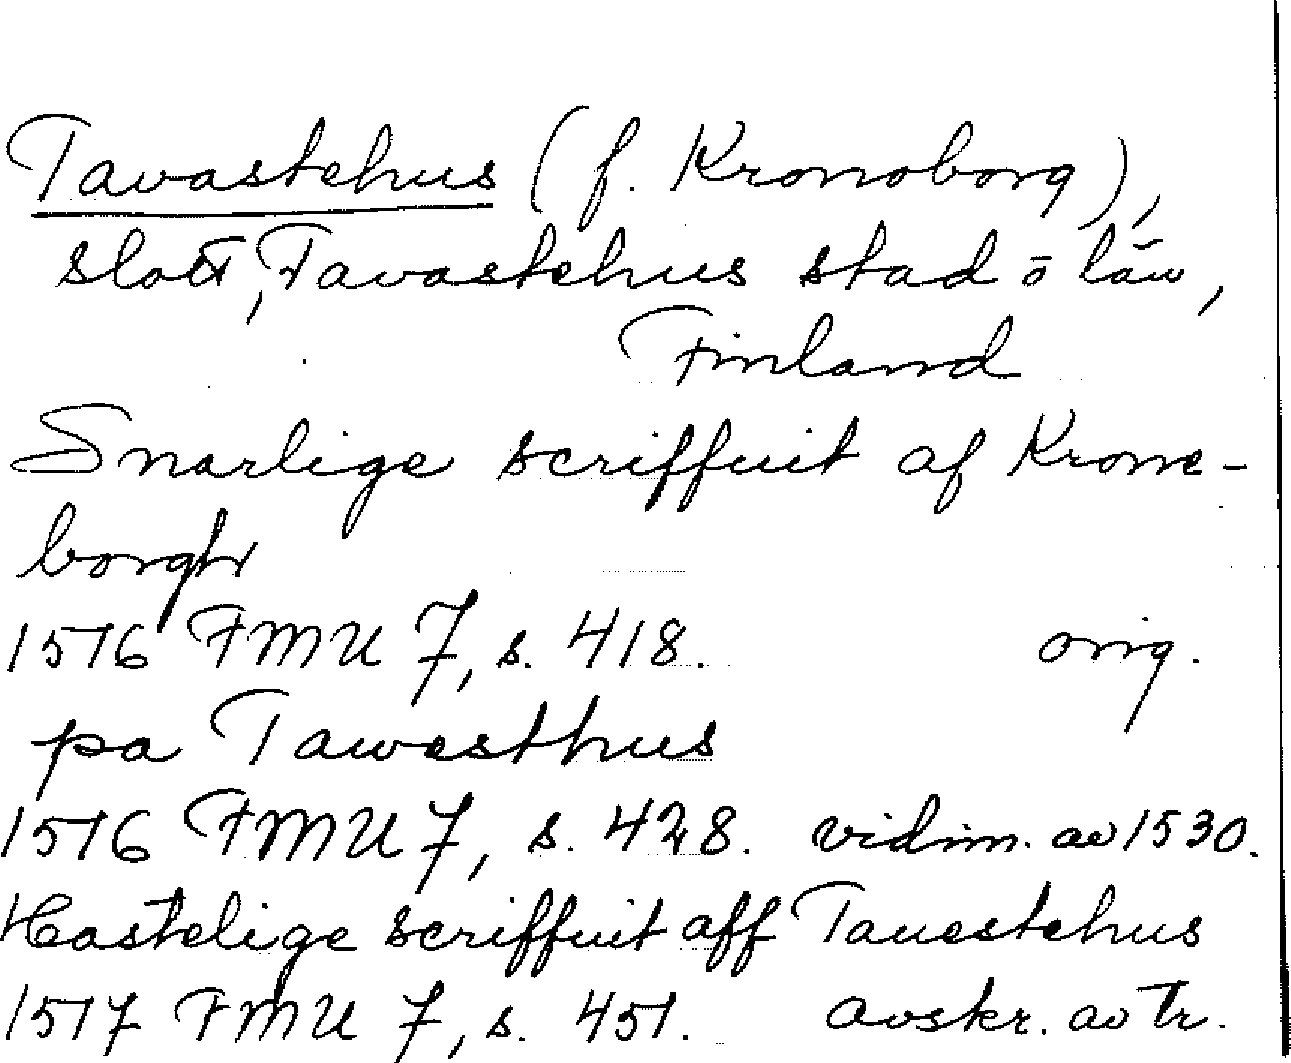 Tavastehus (f. Kronoborg),
slott, Tavastehus stad o län,
Finland
Snarlige scriffuit af Krone-
borgh
1516 FMU 7, s. 418. orig.
pa Tawesthus
1516 FMU 7, s. 428. vidim. av 1530.
Hastelige scriffuit aff Tauestehus
1517 FMU 7, s. 451. avskr. av Tr.